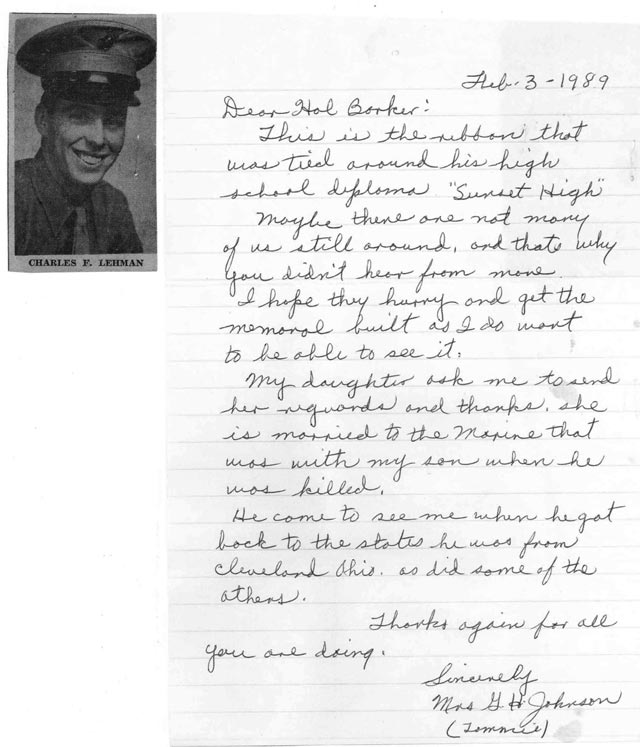 CHARLES F. LEHMAN
Feb. 3 - 1989
Dear Hal Barker:
This is the ribbon that
was tied around his high
school diploma "Sunset High"
Maybe there are not many
of us still around, and thats why
you didn't hear from more.
I hope they hurry and get the
memoral built as I do want
to be able to see it.
My daughter ask me to send
her reguards and thanks. she
is married to the Marine that
was with my son when he
was killed.
He come to see me when he got
back to the states he was from
Cleveland Ohio. as did some of the
others.
Thanks again for all
you are doing.
Sincerely
Mrs G H Johnson
(Tommie)